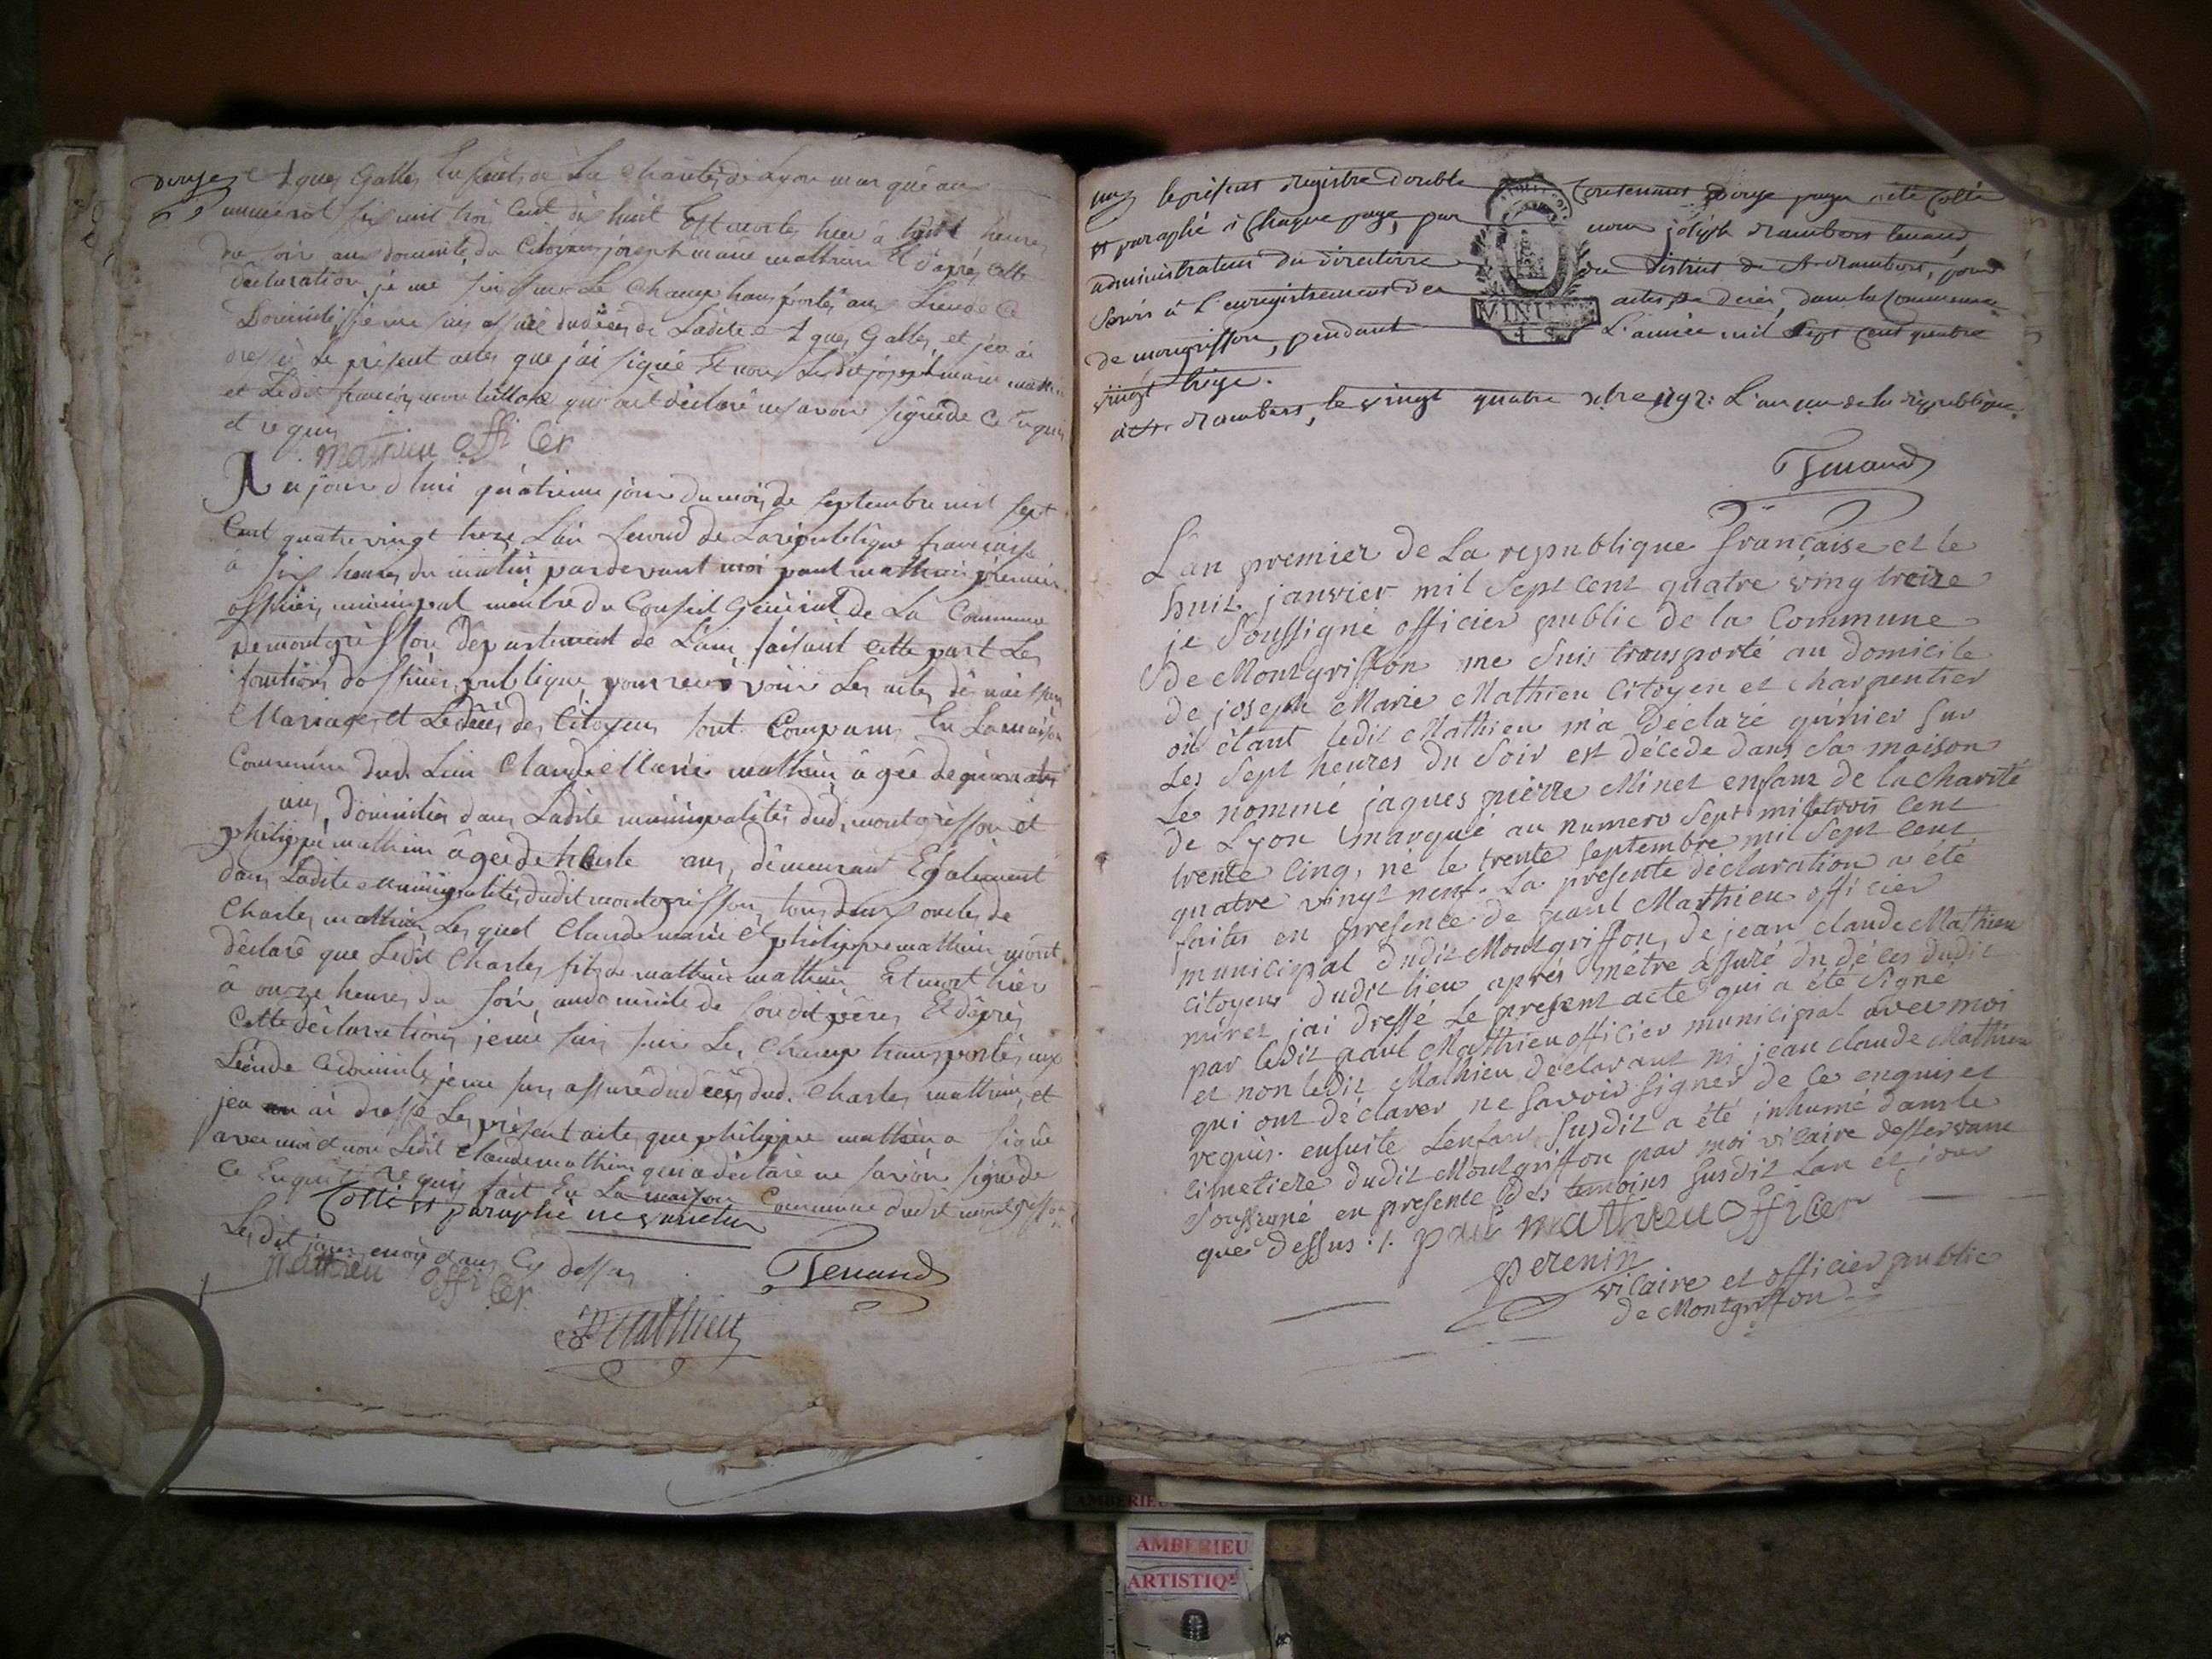 douze
et ques Galley Enfant de La Charité de Lyon marqué au
numerot six mil trois Cent dix huit Est morte hier à huit heures
du soir au domicile du Citoyen joseph marie mathieu Et d'après cette
déclaration je me suis sur Le Champ transporté au Lieu de Ce
Domicile je me suis assuré du décés de Ladite ques Galley, et j'en ai
dressé Le présent acte que j'ai signé Et non Ledit joseph marie mathieu
et Ledit françois qui ont déclaré ne savoir signé de Ce Enquis
et requis
mathieu offi cer
Aujour d'huî quatrieme jour du mois de septembre mil sept
Cent quatre vingt treze L'an second de La republique française
à six heures du matin pardevant moi paul mathieu premier
officier municipal membre du Conseil Général de La Commune
de montgriffon département de L'ain, faisant cette part Les
fonctions d'officier publique pour recevoir Les actes de naissance
Mariages et Le décés des Citoyens sont Comparus En La maison
Commune dud. Lieu Claude Marie mathieu âgée de quarante
ans, domicilié dans Ladite municipalité dud. montgriffon et
philippe mathieu âgée de trente ans, demeurant Egalement
dans Ladite municipalité dudit montgriffon, tous deux oncles de
Charles mathieu Les quel Claude marie et philippe mathieu m'ont
déclaré que Ledit Charles fils de mathieu mathieu Est mort hier
à onze heures du soir au domicile de son dit père, Et d'après
Cette déclaration je me suis sur Le Champ transporté aux
Lieu de Ce domicile, je me suis assuré du décés dud. Charles mathieu, et
j'en ai dressé Le présent acte que philippe mathieu a signé
avec moi et non Ledit Claude mathieu qui a déclaré ne savoir signé de
Ce Enquis et requis fait En La maison Commune dudit montgriffon
Cotté et paraphé ne varietur
Les dit jour, mois et an Cy dessus
Tenand
mathieu offi cer
P Mathieu
un
le présent registre double Contenant douze pages a été Cotté
et paraphé à Chaque page, par nous joseph rambert tenand,
administrateur du directoire du district de St rambert, pour
servir à l'enregistrement des actes de décès, dans la Commune
de mongriffon, pendant L'année mil sept cent quatre
vingt treize.
à St. rambert, le vingt quatre xbre 1792. L'an un de la république.
Tenand
L'an premier de La republique française et le
huit janvier mil sept cent quatre ving treize
je soussigné officier public de la Commune
de Montgriffon me suis transporté au domicile
de joseph Marie Mathieu Citoyen et charpentier
où étant ledit Mathieu m'a déclaré qu'hier sur
les sept heures du soir est décédé dans sa maison
Le nommé jaques pierre Minet enfant de la charité
de Lyon marqué au numero sept mille trois cent
trente cinq, né le trente septembre mil sept cent
quatre vingt neuf. La presente déclaration a été
faites en presence de paul Mathieu officier
municipal dudit Montgriffon, de jean claude Mathieu
citoyens dudit lieu après m'être assuré du déces dudit
minet j'ai dressé Le present acte qui a été signé
par ledit paul Mathieu officier municipal avec moi
et non ledit Mathieu déclarant ni jean claude Mathieu
qui ont déclarer ne savoir signer de ce enquis et
requis. ensuite Lenfant susdit a été inhumé dans le
cimetiere dudit Montgriffon par moi vicaire desservant
soussigné en presence des temoins susdit Lan et jour
que dessus ./. paul mathieu officer
perenin
vicaire et officier public
de Montgriffon
AMBERIEU
AMBERIEU
ARTISTIQ